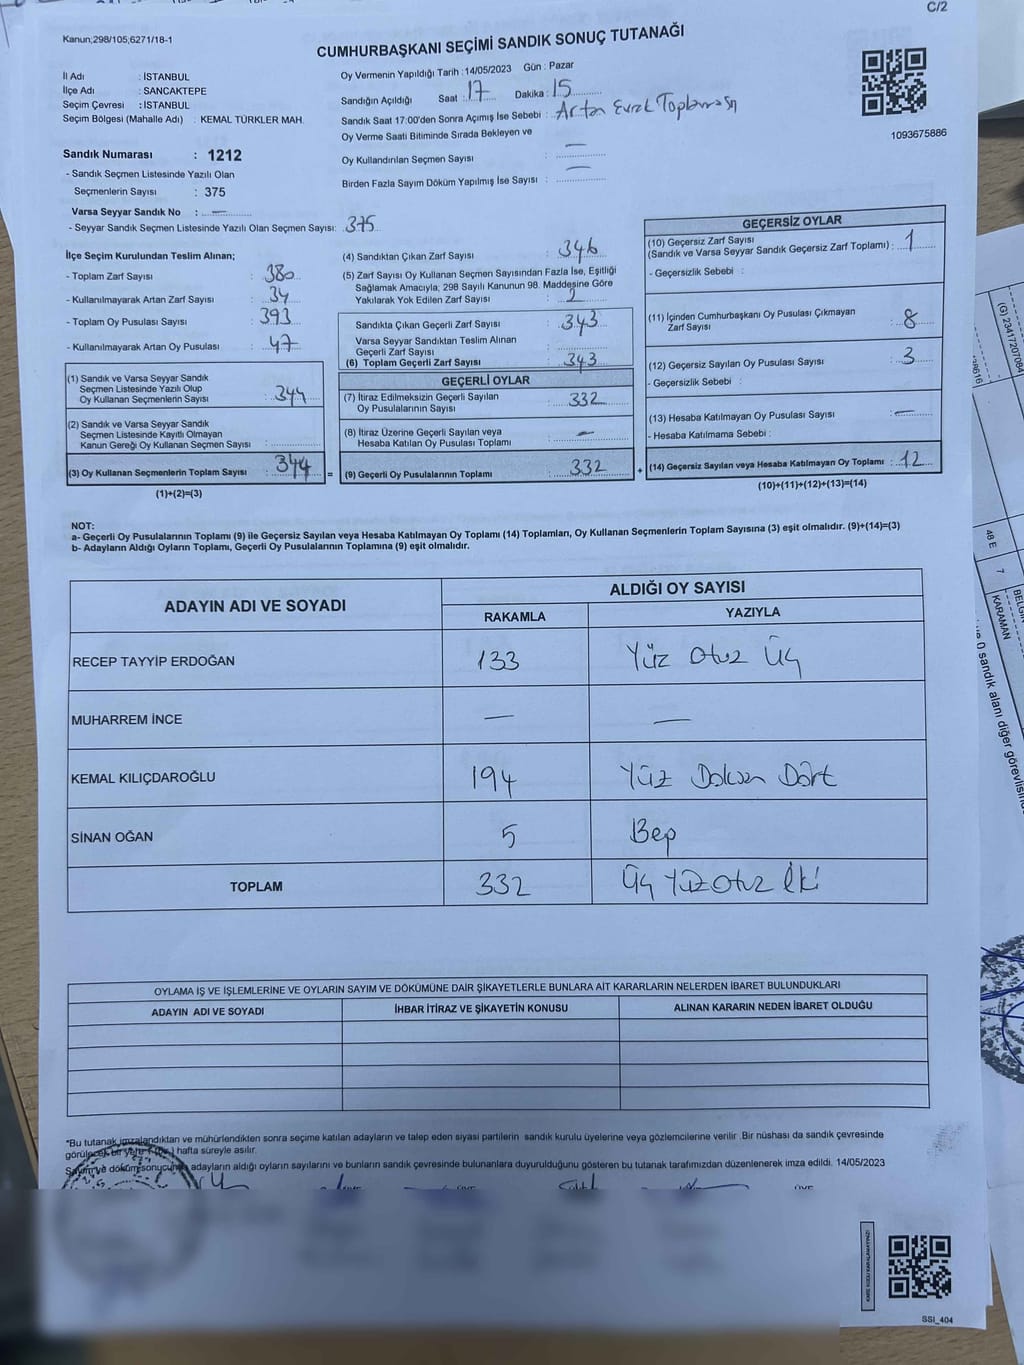 C/2
Kanun;298/105;6271/18-1
CUMHURBAŞKANI SEÇİMİ SANDIK SONUÇ TUTANAĞI
İl Adı : İSTANBUL
İlçe Adı : SANCAKTEPE
Seçim Çevresi : İSTANBUL
Seçim Bölgesi (Mahalle Adı) : KEMAL TÜRKLER MAH.
Oy Vermenin Yapıldığı Tarih : 14/05/2023 Gün : Pazar
Sandığın Açıldığı Saat : 17 Dakika : 15
Sandık Saat 17:00'den Sonra Açımış İse Sebebi : Artan Evrak Toplaması
Oy Verme Saati Bitiminde Sırada Bekleyen ve
Oy Kullandırılan Seçmen Sayısı : —
Birden Fazla Sayım Döküm Yapılmış İse Sayısı : —
1093675886
Sandık Numarası : 1212
- Sandık Seçmen Listesinde Yazılı Olan
Seçmenlerin Sayısı : 375
Varsa Seyyar Sandık No : —
- Seyyar Sandık Seçmen Listesinde Yazılı Olan Seçmen Sayısı: 375
İlçe Seçim Kurulundan Teslim Alınan;
- Toplam Zarf Sayısı : 380
- Kullanılmayarak Artan Zarf Sayısı : 34
- Toplam Oy Pusulası Sayısı : 393
- Kullanılmayarak Artan Oy Pusulası : 47
(1) Sandık ve Varsa Seyyar Sandık
Seçmen Listesinde Yazılı Olup
Oy Kullanan Seçmenlerin Sayısı : 344
(2) Sandık ve Varsa Seyyar Sandık
Seçmen Listesinde Kayıtlı Olmayan
Kanun Gereği Oy Kullanan Seçmen Sayısı :
(3) Oy Kullanan Seçmenlerin Toplam Sayısı : 344 =
(1)+(2)=(3)
(4) Sandıktan Çıkan Zarf Sayısı : 346
(5) Zarf Sayısı Oy Kullanan Seçmen Sayısından Fazla İse, Eşitliği
Sağlamak Amacıyla; 298 Sayılı Kanunun 98. Maddesine Göre
Yakılarak Yok Edilen Zarf Sayısı : 2
Sandıkta Çıkan Geçerli Zarf Sayısı : 343
Varsa Seyyar Sandıktan Teslim Alınan
Geçerli Zarf Sayısı :
(6) Toplam Geçerli Zarf Sayısı : 343
GEÇERLİ OYLAR
(7) İtiraz Edilmeksizin Geçerli Sayılan
Oy Pusulalarının Sayısı : 332
(8) İtiraz Üzerine Geçerli Sayılan veya
Hesaba Katılan Oy Pusulası Toplamı : —
(9) Geçerli Oy Pusulalarının Toplamı : 332 +
GEÇERSİZ OYLAR
(10) Geçersiz Zarf Sayısı
(Sandık ve Varsa Seyyar Sandık Geçersiz Zarf Toplamı) : 1
- Geçersizlik Sebebi :
(11) İçinden Cumhurbaşkanı Oy Pusulası Çıkmayan
Zarf Sayısı : 8
(12) Geçersiz Sayılan Oy Pusulası Sayısı : 3
- Geçersizlik Sebebi :
(13) Hesaba Katılmayan Oy Pusulası Sayısı : —
- Hesaba Katılmama Sebebi :
(14) Geçersiz Sayılan veya Hesaba Katılmayan Oy Toplamı : 12
(10)+(11)+(12)+(13)=(14)
NOT:
a- Geçerli Oy Pusulalarının Toplamı (9) ile Geçersiz Sayılan veya Hesaba Katılmayan Oy Toplamı (14) Toplamları, Oy Kullanan Seçmenlerin Toplam Sayısına (3) eşit olmalıdır. (9)+(14)=(3)
b- Adayların Aldığı Oyların Toplamı, Geçerli Oy Pusulalarının Toplamına (9) eşit olmalıdır.
ADAYIN ADI VE SOYADI
ALDIĞI OY SAYISI
RAKAMLA YAZIYLA
RECEP TAYYİP ERDOĞAN 133 Yüz Otuz Üç
MUHARREM İNCE — —
KEMAL KILIÇDAROĞLU 194 Yüz Doksan Dört
SİNAN OĞAN 5 Beş
TOPLAM 332 Üç Yüz Otuz İki
OYLAMA İŞ VE İŞLEMLERİNE VE OYLARIN SAYIM VE DÖKÜMÜNE DAİR ŞİKAYETLERLE BUNLARA AİT KARARLARIN NELERDEN İBARET BULUNDUKLARI
ADAYIN ADI VE SOYADI İHBAR İTİRAZ VE ŞİKAYETİN KONUSU ALINAN KARARIN NEDEN İBARET OLDUĞU
"Bu tutanak imzalandıktan ve mühürlendikten sonra seçime katılan adayların ve talep eden siyasi partilerin sandık kurulu üyelerine veya gözlemcilerine verilir .Bir nüshası da sandık çevresinde
görülecek bir yere hafta süreyle asılır.
Sayım ve döküm sonucunda adayların aldığı oyların sayılarını ve bunların sandık çevresinde bulunanlara duyurulduğunu gösteren bu tutanak tarafımızdan düzenlenerek imza edildi. 14/05/2023
SSI_404
(G) 23417207084
48 E
7
KARAMAN
0 sandık alanı diğer görevlisinde